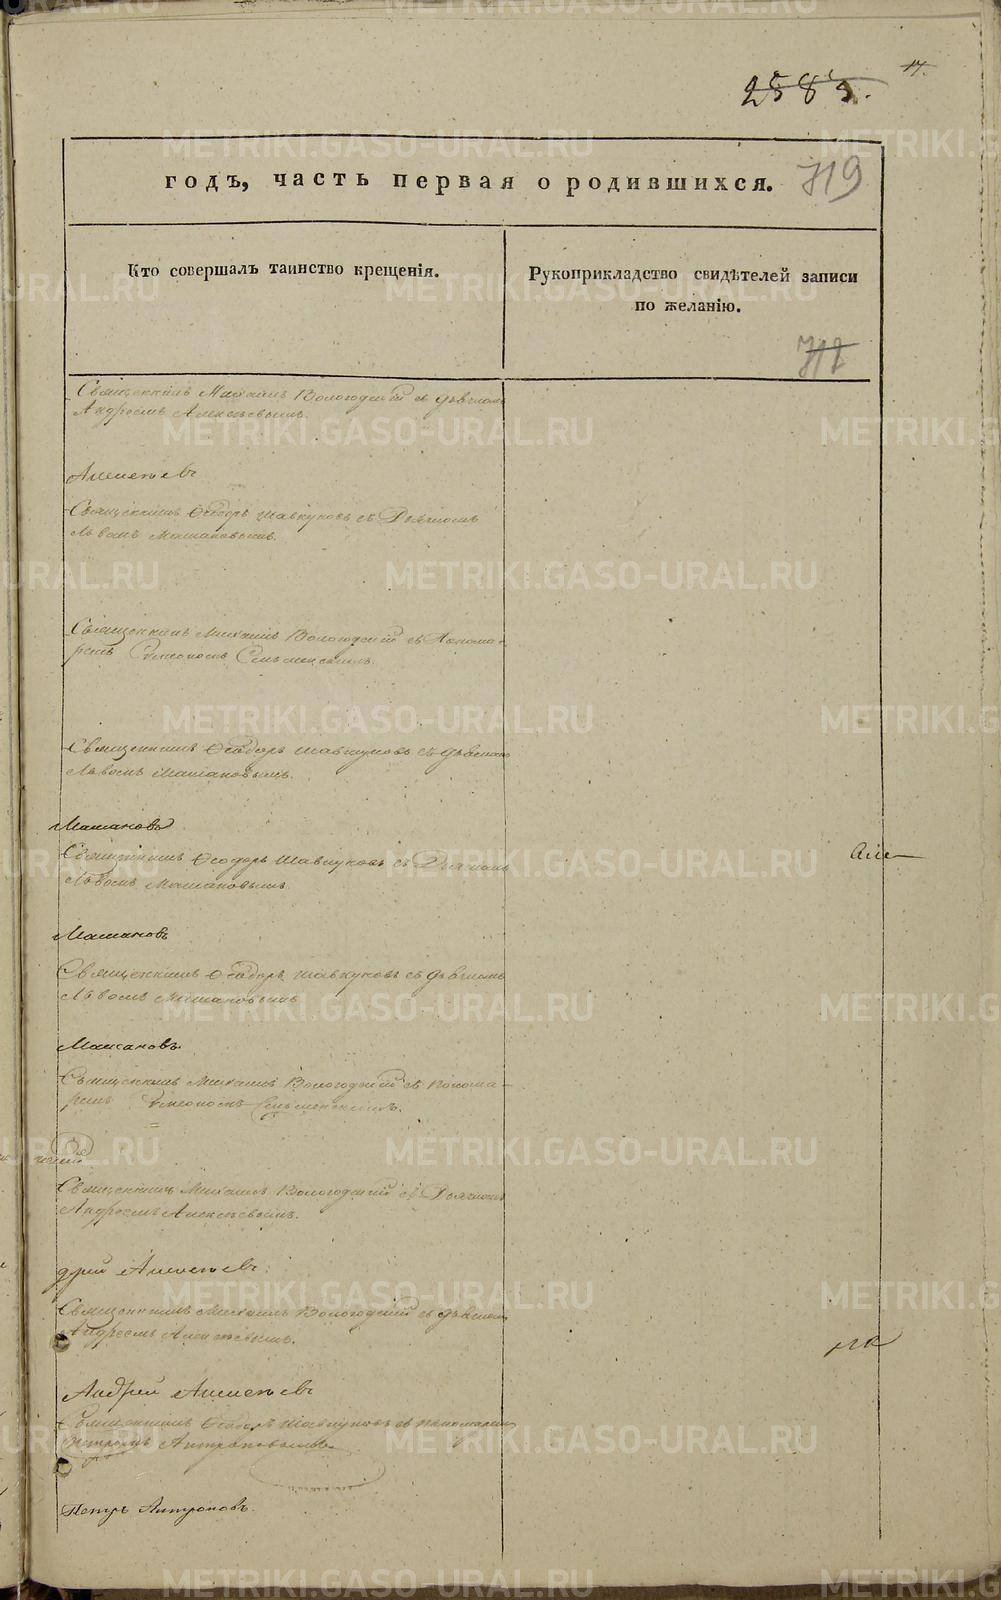 2585.
14.
годъ, часть первая о родившихся.
719
Кто совершалъ таинство крещенія.
Рукоприкладство свидѣтелей записи
по желанію.
718
Священникъ Михаилъ Вологодскій съ дьякономъ
Андреемъ Алексѣевымъ.
Алексѣевъ
Священникъ Ѳеодоръ Шавкуновъ съ Дьякономъ
Львомъ Машановымъ.
Священникъ Михаилъ Вологодскій съ Понома-
ремъ Симеономъ
Священникъ Ѳеодоръ Шавкуновъ съ дьякономъ
Львомъ Машановымъ.
Машановъ
Священникъ Ѳеодоръ Шавкуновъ съ Дьякономъ
Львомъ Машановымъ.
Машановъ
Священникъ Ѳеодоръ Шавкуновъ съ дьякономъ
Львомъ Машановымъ
Машановъ
Священникъ Михаилъ Вологодскій съ понома-
ремъ Симеономъ
Священникъ Михаилъ Вологодскій съ Дьякономъ
Андреемъ Алексѣевымъ.
дрей Алексѣевъ.
Священникъ Михаилъ Вологодскій съ дьякономъ
Андреемъ Алексѣевымъ.
Андрей Алексѣевъ
Священникъ Ѳеодоръ Шавкуновъ съ пономаремъ
Петромъ Антроповымъ.
Петръ Антроповъ.
METRIKI.GASO-URAL.RU